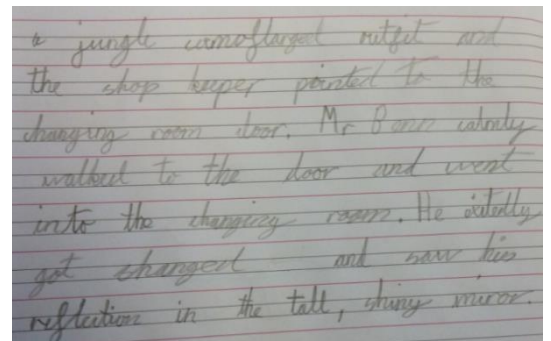 a jungle camoflarged outfit and
the shop keeper pointed to the
changing room door. Mr Benn calmly
walked to the door and went
into the changing room. He exitedly
got changed and saw his
reflection in the tall, shiny miror.